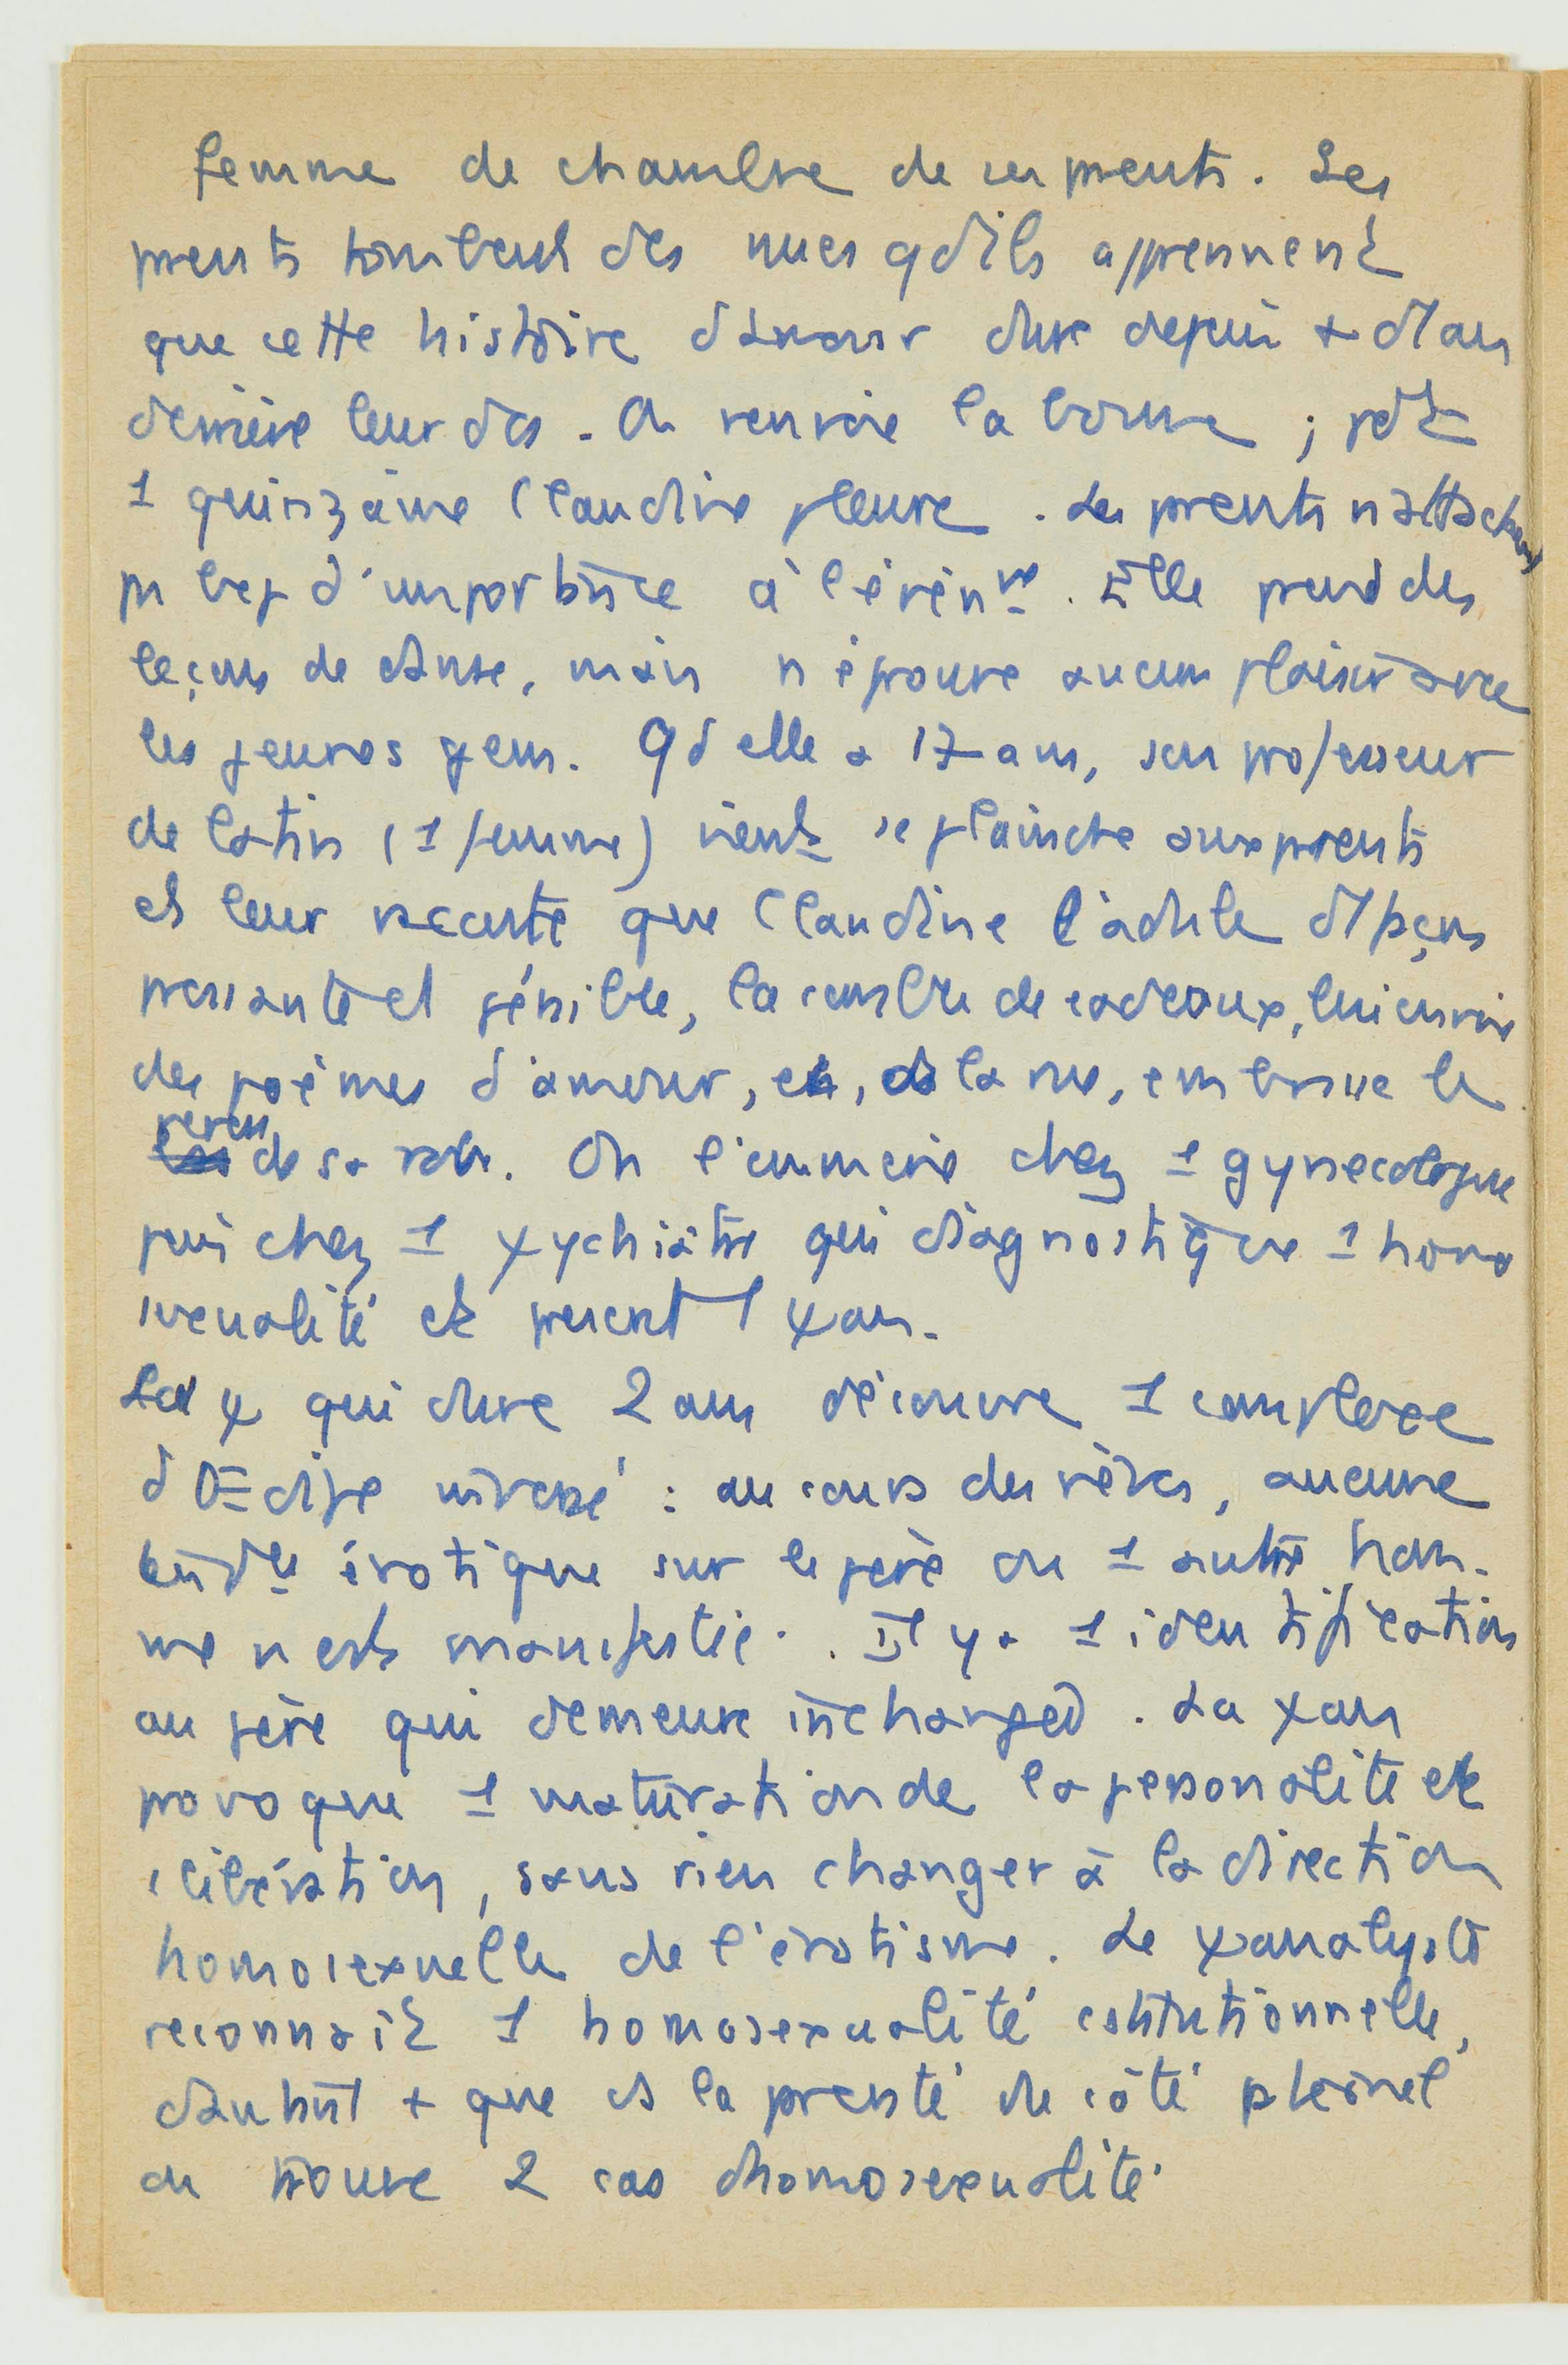 femme de chambre de ses prents. Les
prents tombent des nues qd ils apprennent
que cette histoire d'amour dure depuis + d'1 an
derrière leur dos. On renvoie la bonne ; pdt
1 quinzaine Claudine pleure. Les prents n'attachent
ps bcp d'importce à l'événmt. Elle prend des
leçons de danse, mais n'éprouve aucun plaisir avec
les jeunes gens. Qd elle a 17 ans, son professeur
de latin (1 femme) vient se plaindre aux prents
et leur raconte que Claudine l'adule d'1 façon
pressante et pénible, la comble de cadeaux, lui envoie
des poèmes d'amour, et, ds la rue, embrasse le
revers de sa robe. On l'emmène chez 1 gynécologue
puis chez 1 ψychiatre qui diagnostique 1 homo
sexualité et prescrit 1 ψan.
La ψ qui dure 2 ans découvre 1 complexe
d'Œdipe inversé : au cours des rêves, aucune
tendce érotique sur le père ou 1 autre hom-
me n'est manifestée. Il y a 1 identification
au père qui demeure inchangée. La ψan
provoque 1 maturation de la personnalité et
1 libération, sans rien changer à la direction
homosexuelle de l'érotisme. Le ψanalyste
reconnaît 1 homosexualité cstitutionnelle,
d'autant + que ds la prenté du côté pternel
on trouve 2 cas d'homosexualité.